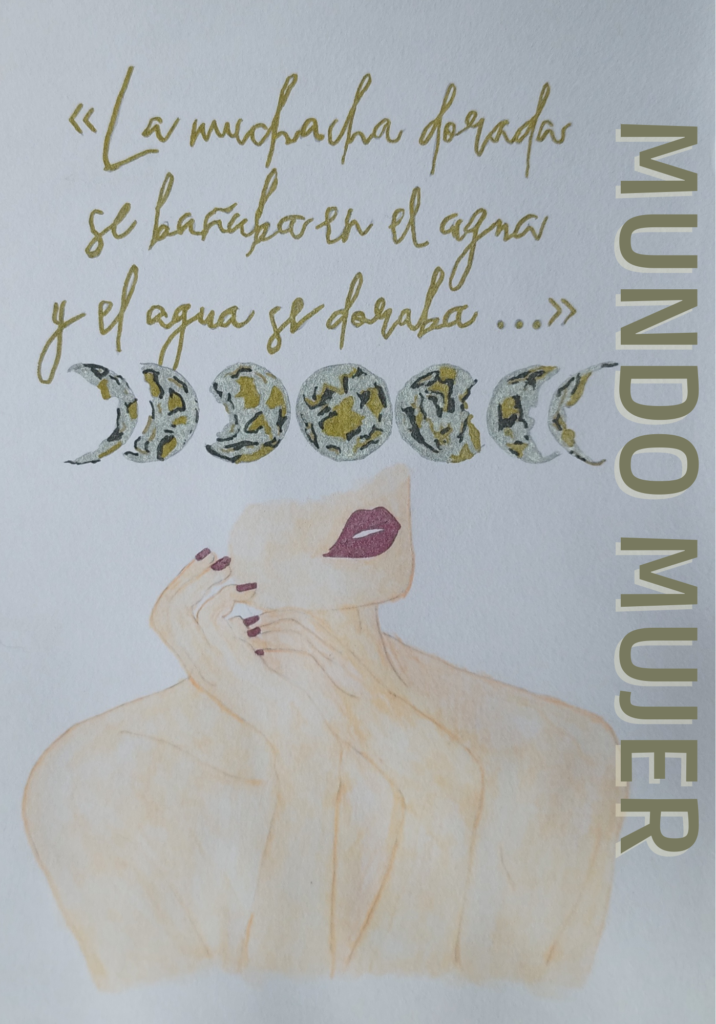 «La muchacha dorada
se bañaba en el agua
y el agua se doraba ...»
MUNDO MUJER